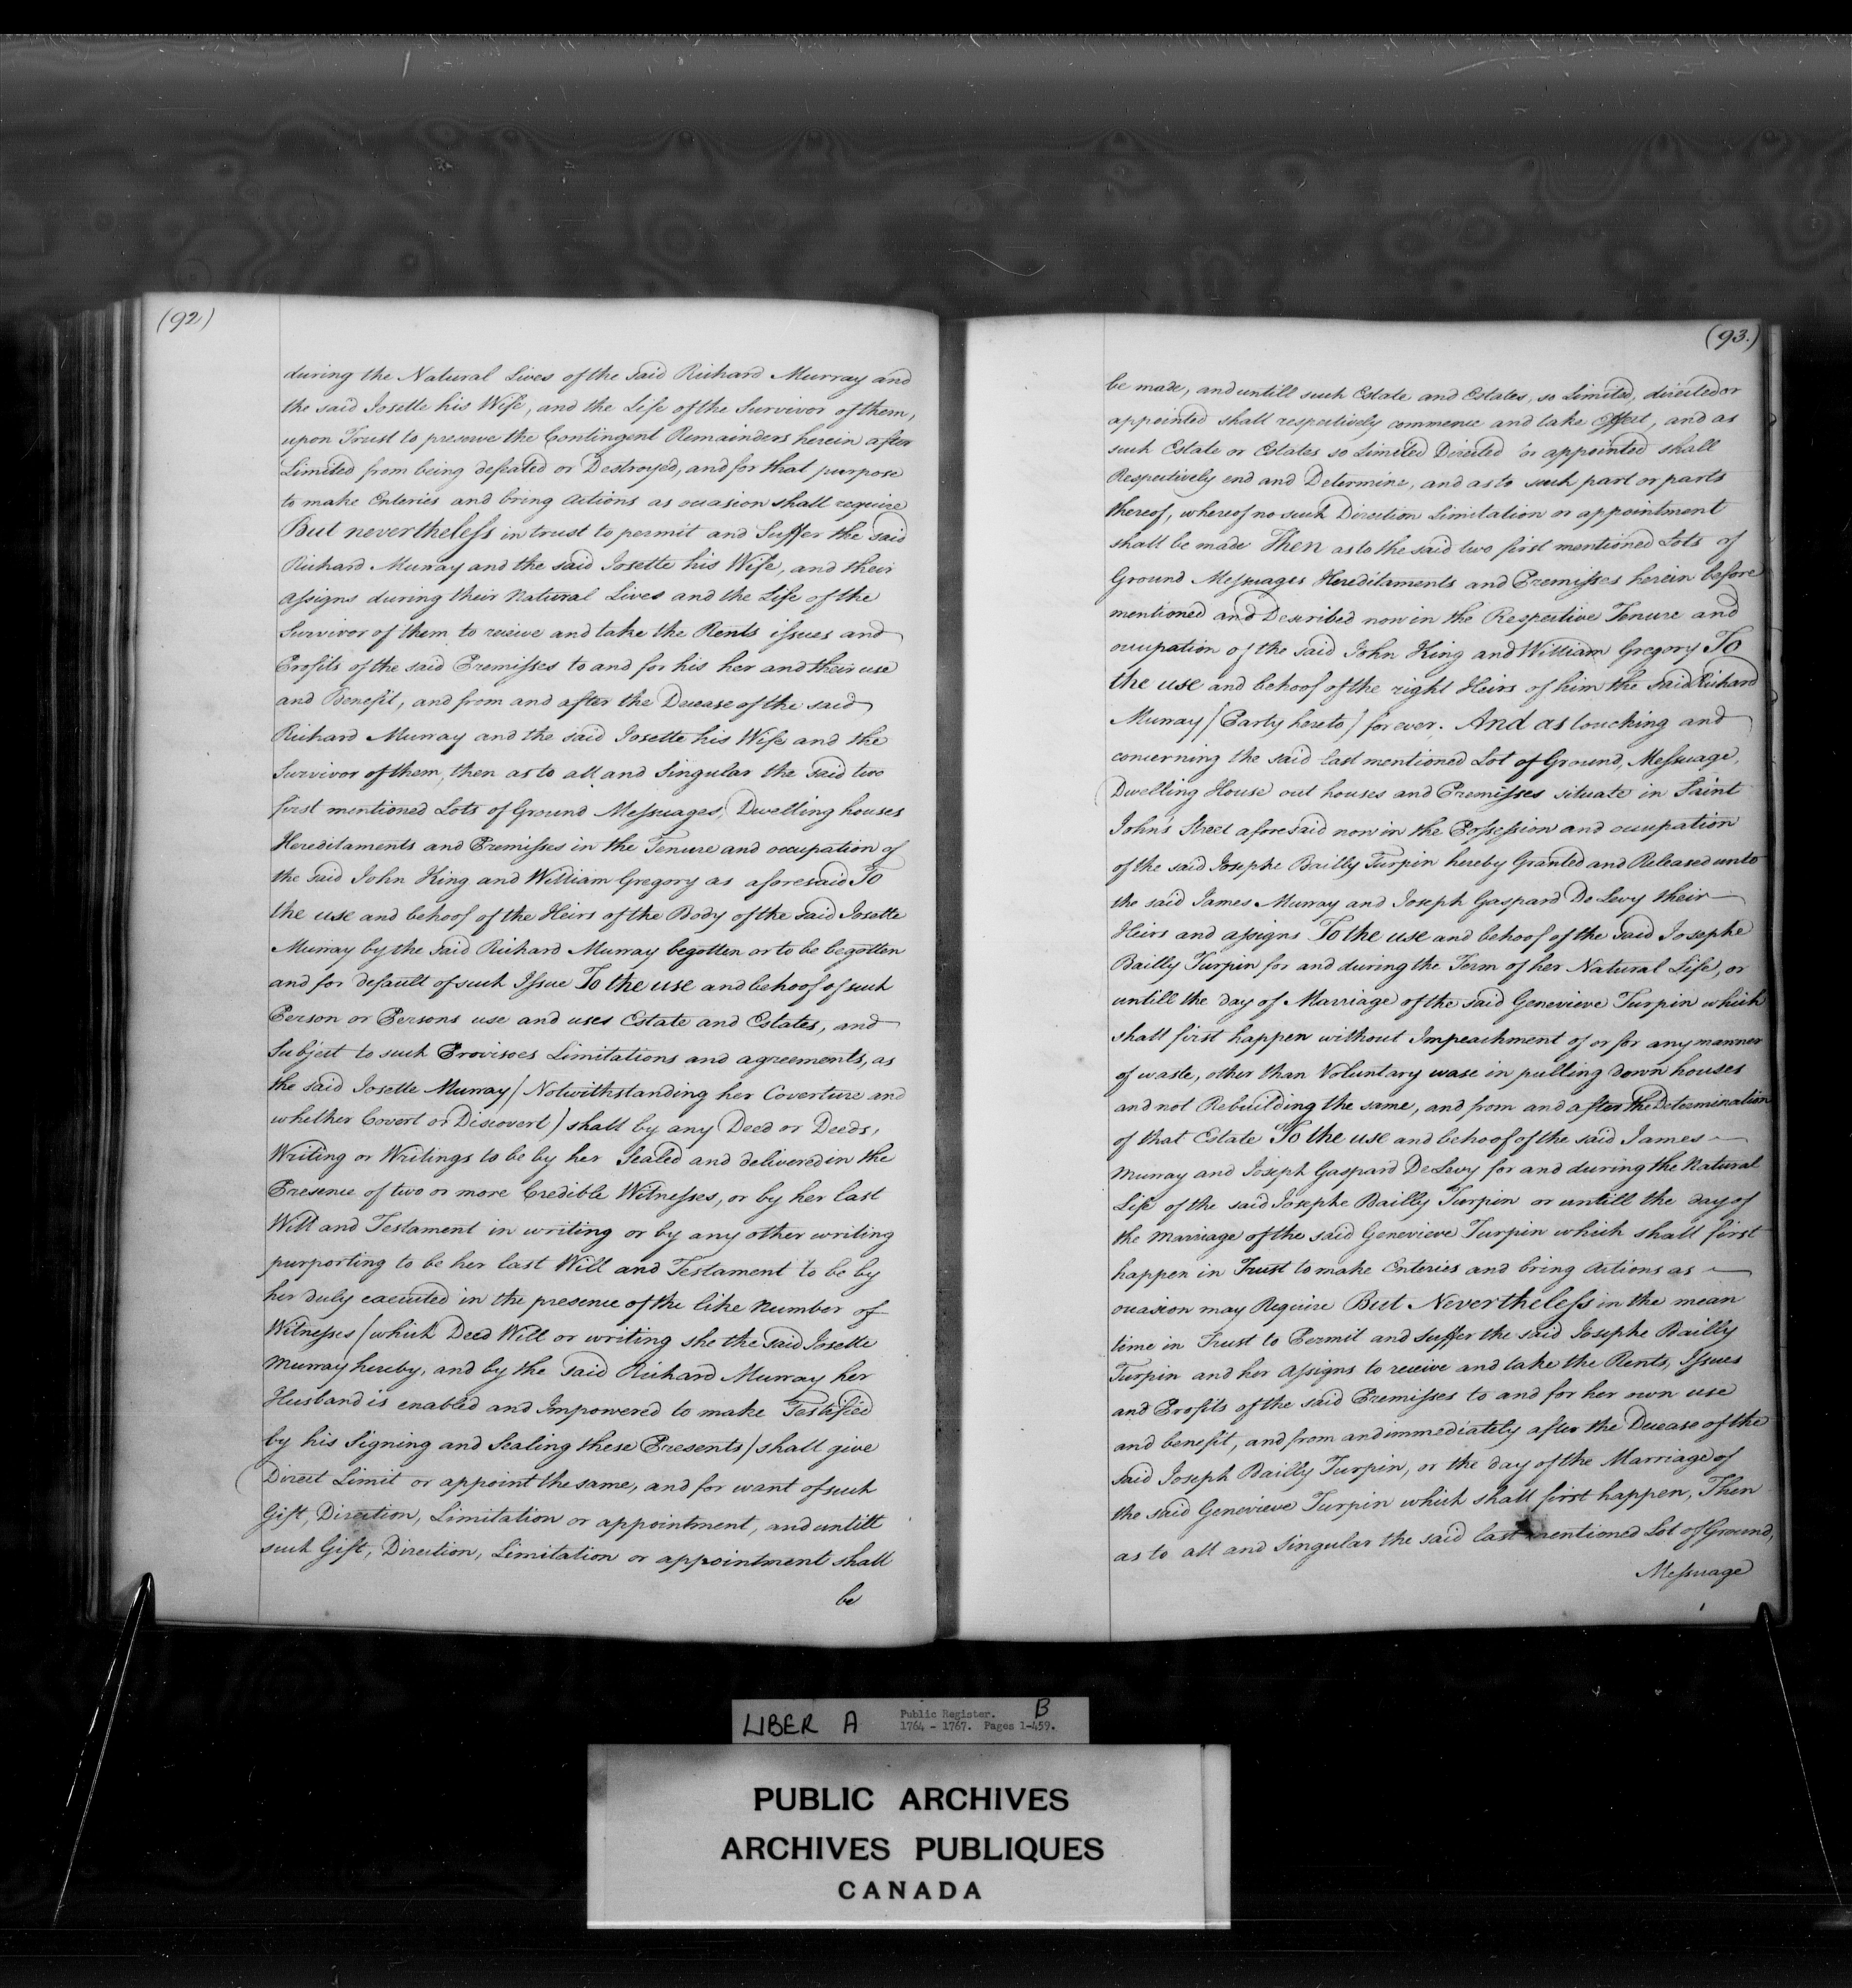 (92)
during the Natural Lives of the said Richard Murray and
the said Josette his Wife, and the Life of the Survivor of them,
upon Trust to preserve the Contingent Remainders herein after
Limited from being defeated or Destroyed, and for that purpose
to make Enteries and bring Actions as occasion shall require
But nevertheless in trust to permit and Suffer the said
Richard Murray and the said Josette his Wife, and their
Assigns during their Natural Lives and the Life of the
Survivor of them to receive and take the Rents issues and
Profits of the said Premisses to and for his her and their use
and Benefit, and from and after the Decease of the said
Richard Murray and the said Josette his Wife and the
Survivor of them, then as to all and Singular the said two
first mentioned Lots of Ground Messuages, Dwelling houses
Hereditaments and Premisses in the Tenure and occupation of
the said John King and William Gregory as aforesaid To
the use and behoof of the Heirs of the Body of the said Josette
Murray by the said Richard Murray begotten or to be begotten
and for default of such Issue To the use and behoof of such
Person or Persons use and uses Estate and Estates, and
Subject to such Provisoes Limitations and agreements, as
the said Josette Murray (Notwithstanding her Coverture and
whether Covert or Discovert) shall by any Deed or Deeds,
Writing or Writings to be by her Sealed and delivered in the
Presence of two or more Credible Witnesses, or by her last
Will and Testament in writing or by any other writing
purporting to be her last Will and Testament to be by
her duly executed in the presence of the like Number of
Witnesses (which Deed Will or writing she the said Josette
Murray hereby, and by the said Richard Murray her
Husband is enabled and Impowered to make Testified
by his Signing and Sealing these Presents) shall give
Direct Limit or appoint the same, and for want of such
Gift, Direction, Limitation or appointment, and untill
such Gift, Direction, Limitation or appointment shall
be
(93.)
be made, and untill such Estate and Estates, so Limited, directed or
appointed shall respectively commence and take Effect, and as
such Estate or Estates so Limited Directed or appointed shall
Respectively end and Determine, and as to such part or parts
thereof, whereof no such Direction Limitation or appointment
shall be made Then as to the said two first mentioned Lots of
Ground Messuages Hereditaments and Premisses herein before
mentioned and Described now in the Respective Tenure and
occupation of the said John King and William Gregory To
the use and behoof of the right Heirs of him the said Richard
Murray (Party hereto) for ever. And as touching and
concerning the said last mentioned Lot of Ground, Messuage,
Dwelling House out houses and Premisses situate in Saint
John's Street aforesaid now in the Possession and occupation
of the said Josephe Bailly Turpin hereby Granted and Released unto
the said James Murray and Joseph Gaspard De Levy their
Heirs and assigns To the use and behoof of the said Josephe
Bailly Turpin for and during the Term of her Natural Life, or
untill the day of Marriage of the said Genevieve Turpin which
shall first happen without Impeachment of or for any manner
of waste, other than Voluntary wase in pulling down houses
and not Rebuilding the same, and from and after the Determination
of that Estate To the use and behoof of the said James
Murray and Joseph Gaspard De Levy for and during the Natural
Life of the said Josephe Bailly Turpin or untill the day of
the Marriage of the said Genevieve Turpin which shall first
happen in Trust to make Enteries and bring Actions as
occasion may Require But Nevertheless in the mean
time in Trust to Permit and suffer the said Josephe Bailly
Turpin and her Assigns to receive and take the Rents, Issues
and Profits of the said Premisses to and for her own use
and benefit, and from and immediately after the Decease of the
said Joseph Bailly Turpin, or the day of the Marriage of
the said Genevieve Turpin which shall first happen, Then
as to all and Singular the said last mentioned Lot of Ground,
Messuage
LIBER A Public Register. B
1764 - 1767. Pages 1-459.
PUBLIC ARCHIVES
ARCHIVES PUBLIQUES
CANADA